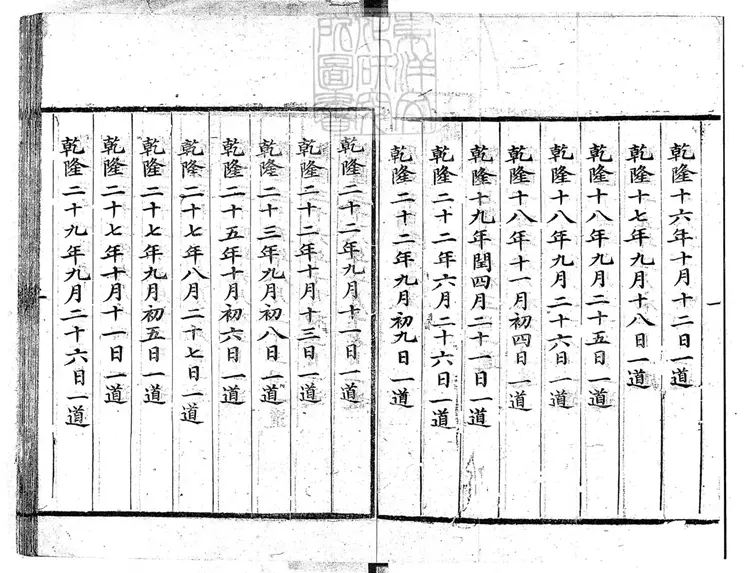 乾隆十六年十月十二日一道
乾隆十七年九月十八日一道
乾隆十八年九月二十五日一道
乾隆十八年九月二十六日一道
乾隆十八年十一月初四日一道
乾隆十九年閏四月二十一日一道
乾隆二十二年六月二十六日一道
乾隆二十二年九月初九日一道
乾隆二十二年九月十一日一道
乾隆二十二年十月十三日一道
乾隆二十三年九月初八日一道
乾隆二十五年十月初六日一道
乾隆二十七年八月二十七日一道
乾隆二十七年九月初五日一道
乾隆二十七年十月十一日一道
乾隆二十九年九月二十六日一道